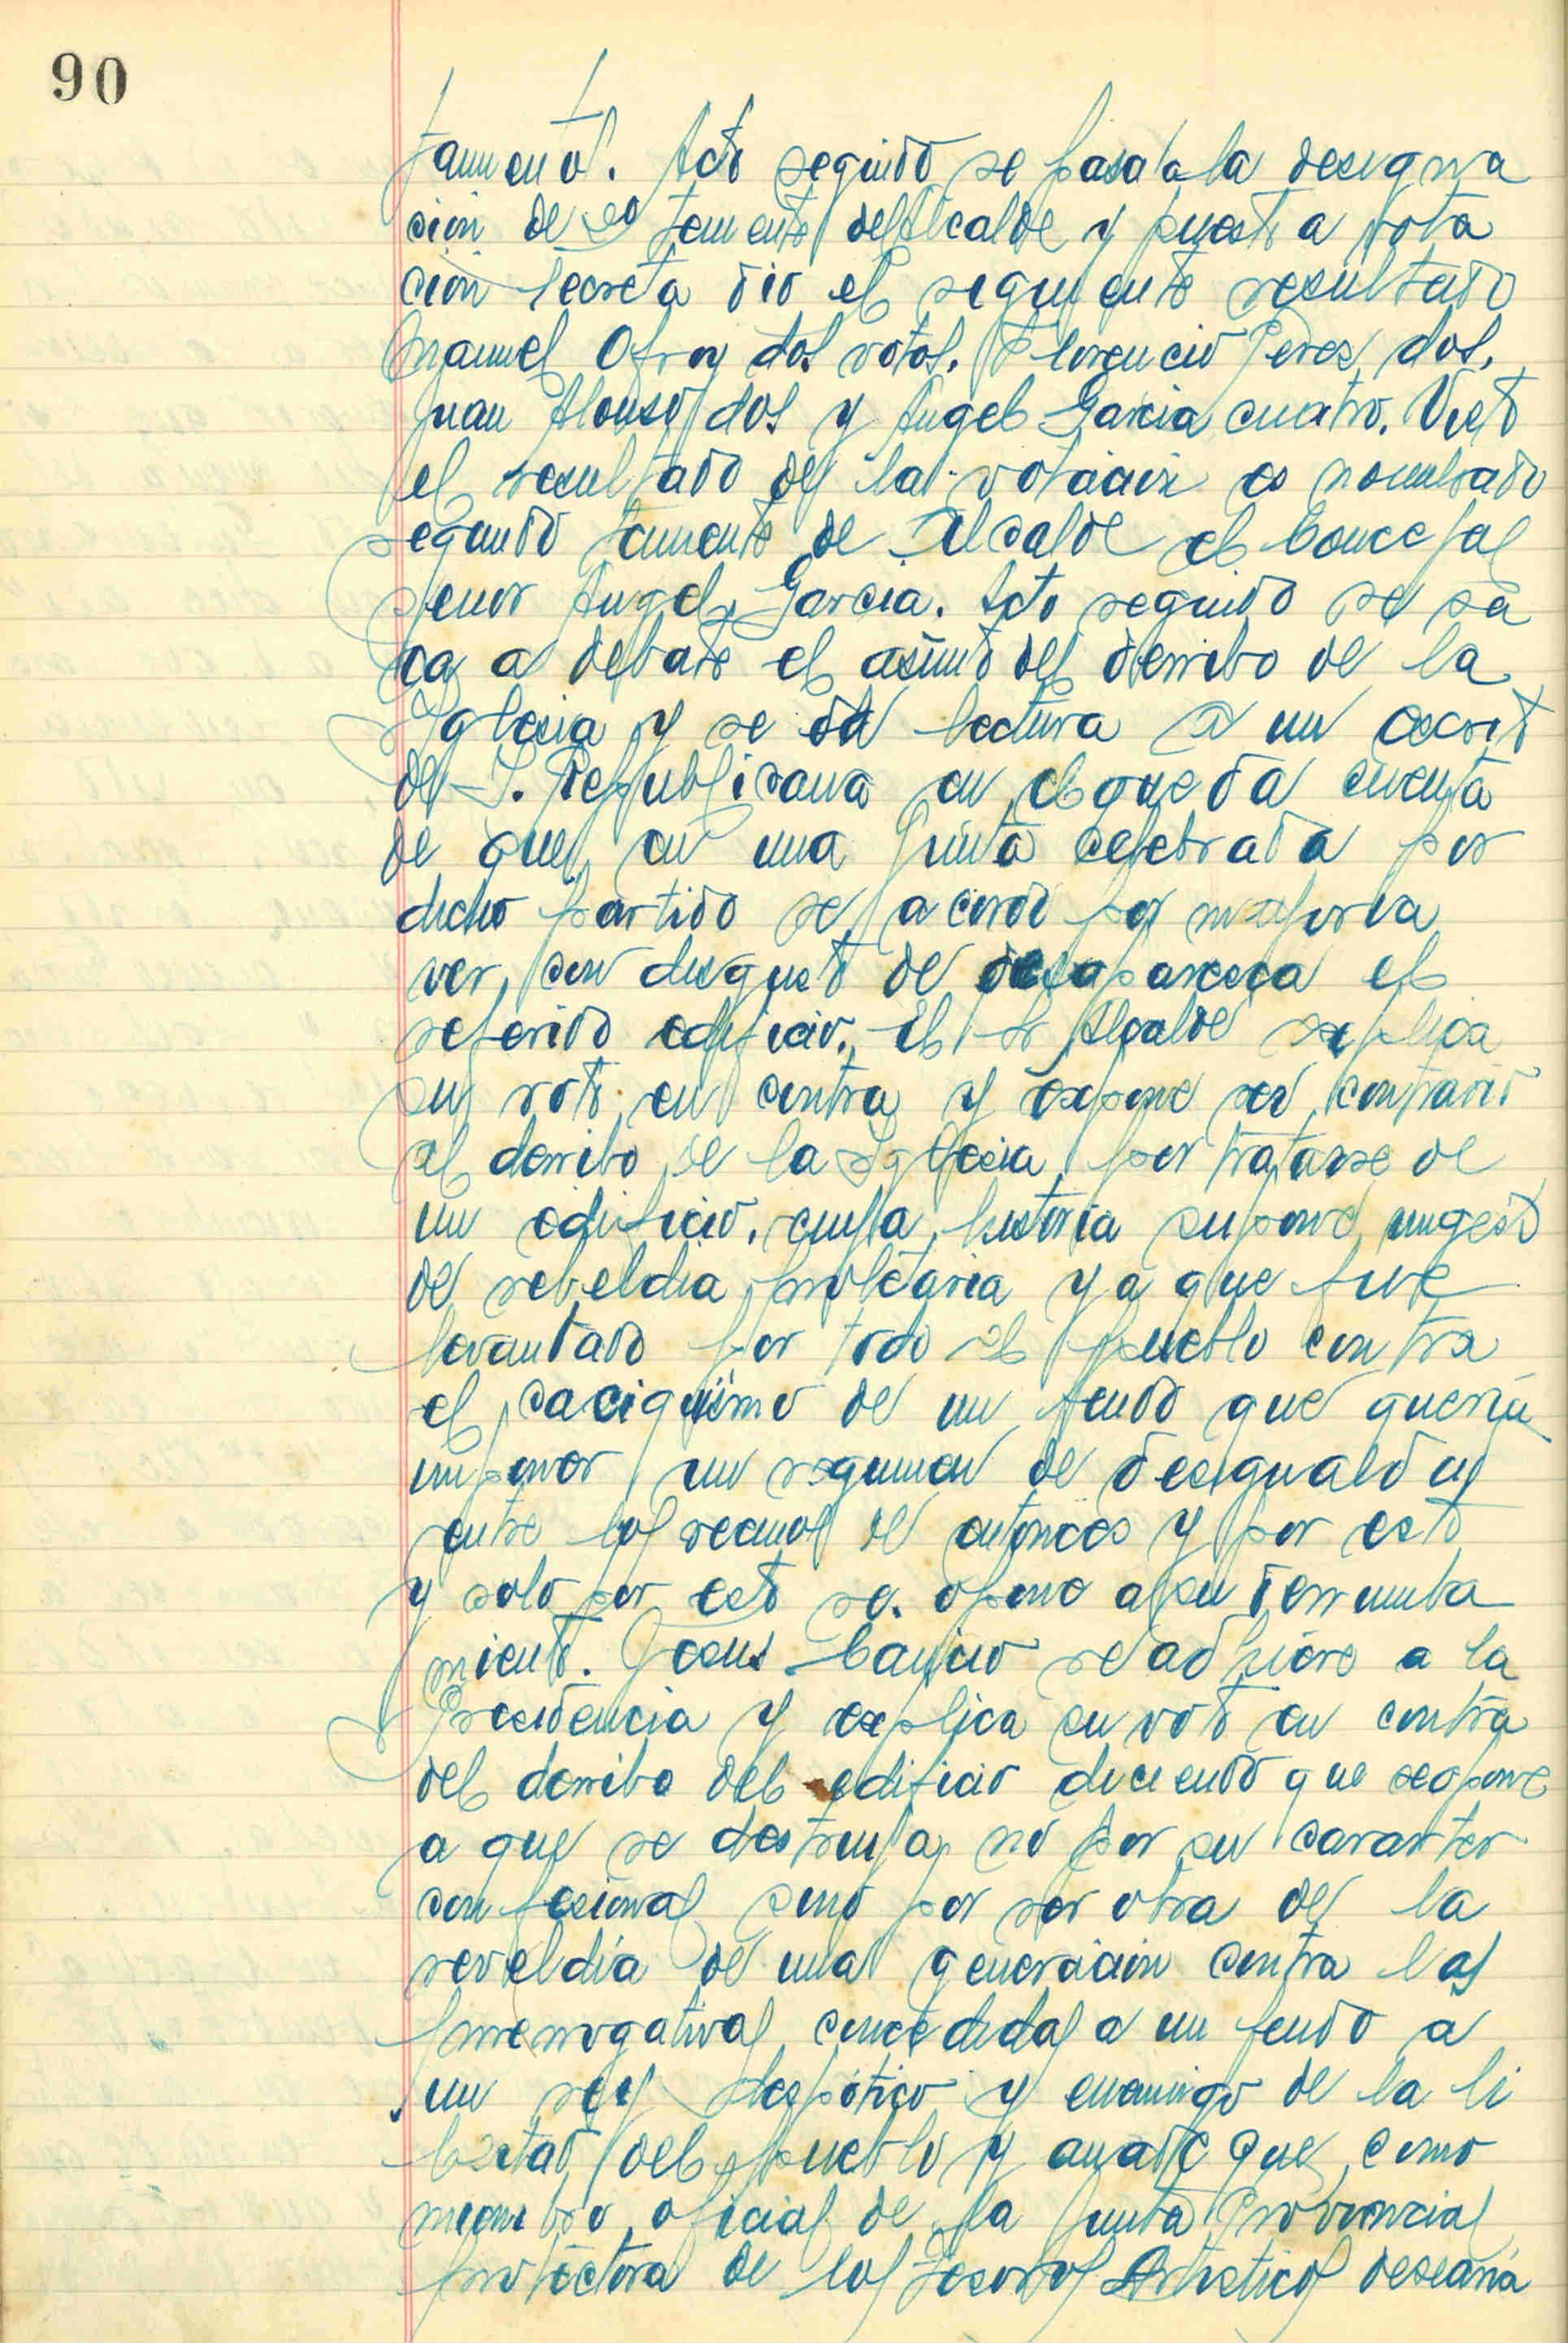 90
tamento. Acto seguido se pasa a la designa
cion de 2º teniente de Alcalde y puesto a vota
cion secreta dio el siguiente resultado
Manuel dos votos. Florencio Perez, dos,
Juan Alonso dos y Angel Garcia cuatro. Visto
el resultado de la votacion es nombrado
segundo teniente de Alcalde el Concejal
señor Angel Garcia. Acto seguido se sa
ca a debate el asunto del derribo de la
Iglesia y se da lectura a un escrito
de I. Republicana en el que da cuenta
de que en una Junta celebrada por
dicho partido se acordo por mayoria
ver con disgusto de desaparezca el
referido edificio. El Sr Alcalde explica
su voto en contra y expone ser contrario
al derribo de la Iglesia por tratarse de
un edificio, cuya historia supone un gesto
de rebeldia proletaria ya que fue
levantado por todo el pueblo contra
el caciquismo de un feudo que queria
imponer un regimen de desigualdad
entre los vecinos de entonces y por esto
y solo por esto se opone a su derrumba
miento. Jesus se adhiere a la
Presidencia y explica su voto en contra
del derribo del edificio diciendo que se opone
a que se destruya, no por su caracter
confesional sino por ser obra de la
reveldia de una generacion contra las
prerrogativas concedidas a un feudo a
un rey despotico y enemigo de la li
bertad del pueblo y añade que como
miembro oficial de la Junta Provincial
protectora de los Tesoros Artistico desearia